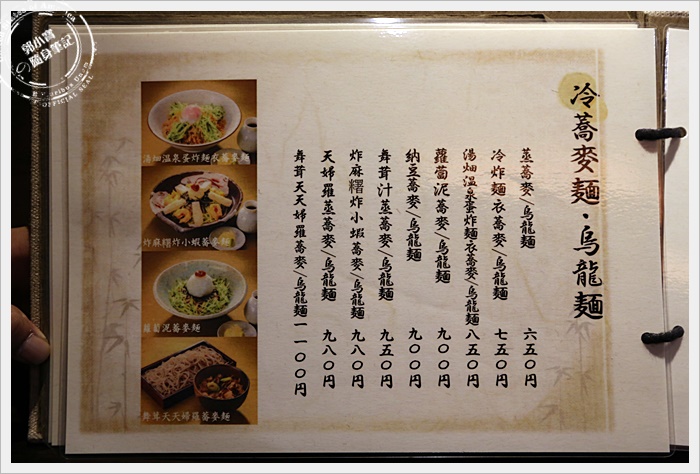 冷蕎麥麵・烏龍麵
蒸蕎麥/烏龍麵 六五〇円
冷炸麵衣蕎麥/烏龍麵 七五〇円
湯畑溫泉蛋炸麵衣蕎麥/烏龍麵 八五〇円
蘿蔔泥蕎麥/烏龍麵 九〇〇円
納豆蕎麥/烏龍麵 九〇〇円
舞茸汁蒸蕎麥/烏龍麵 九五〇円
炸麻糬炸小蝦蕎麥/烏龍麵 九八〇円
天婦羅蒸蕎麥/烏龍麵 九八〇円
舞茸天天婦羅蕎麥/烏龍麵 一一〇〇円
湯畑溫泉蛋炸麵衣蕎麥麵
炸麻糬炸小蝦蕎麥麵
蘿蔔泥蕎麥麵
舞茸天天婦羅蕎麥麵
郭小寶
の隨身筆記
OFFICIAL SEAL